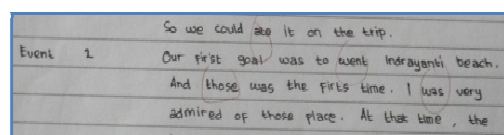 So we could ate it on the trip.
Event 2 Our first goal was to went Indrayanti beach.
And those was the firts time. I was very
admired of those place. At that time, the